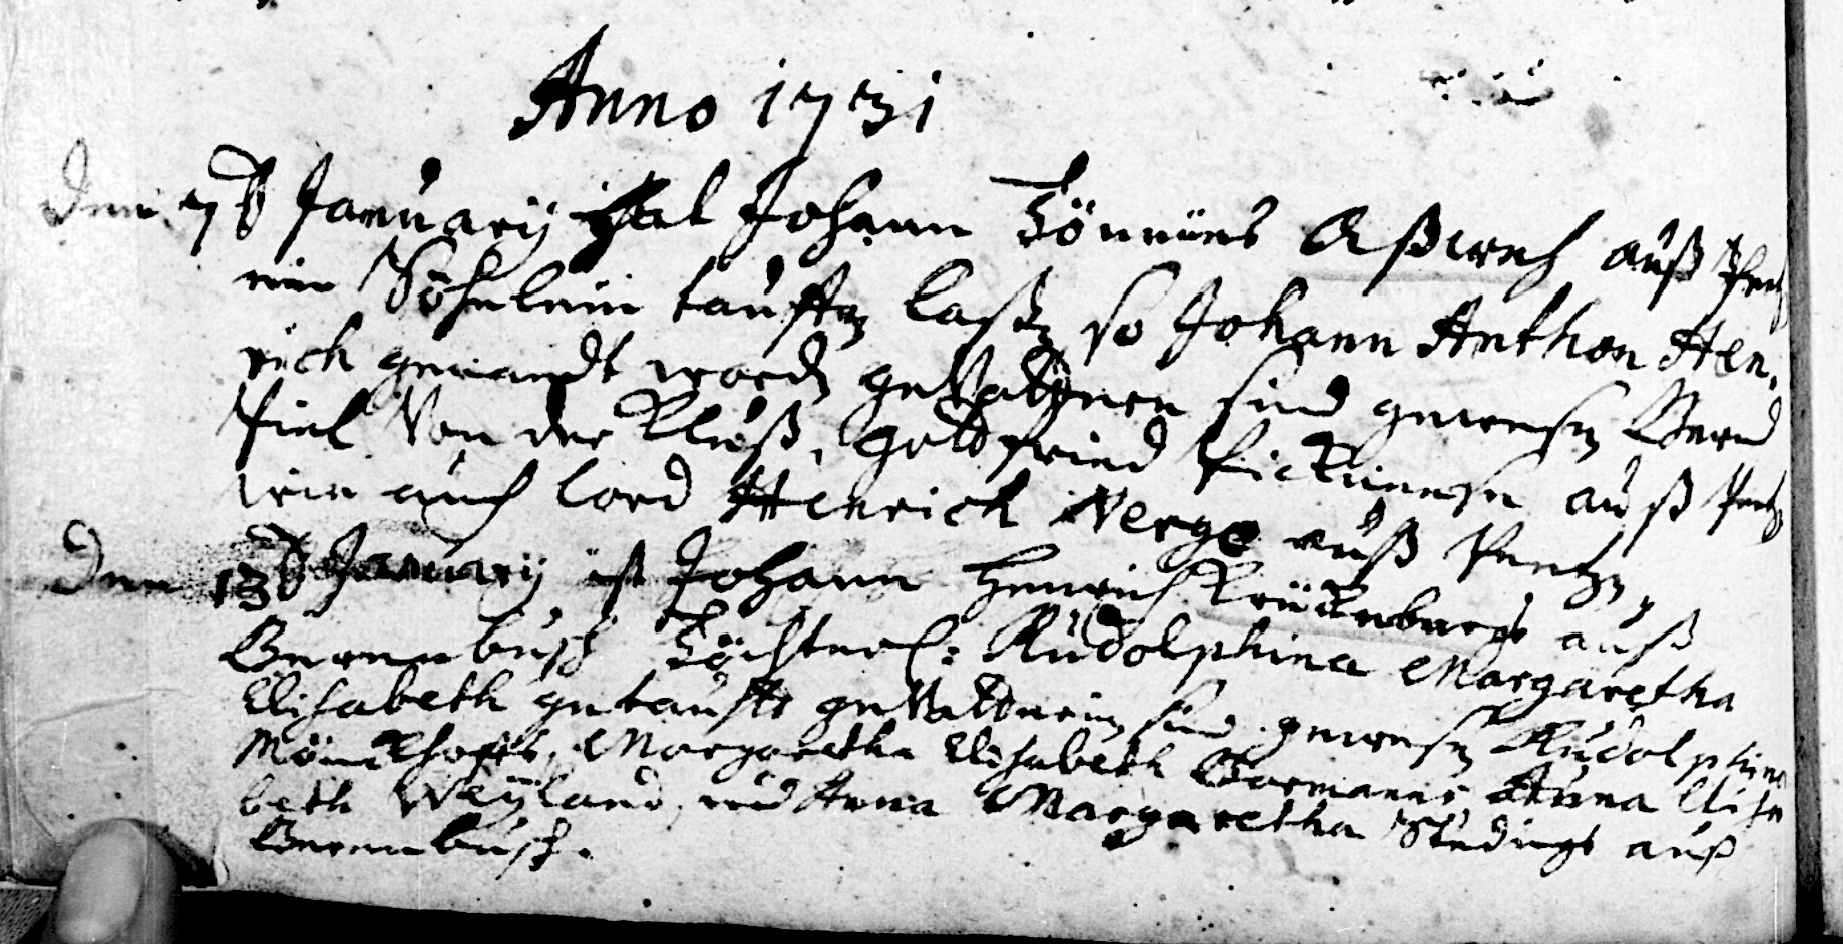 Anno 1731
Den 7t January hat Johann Tönnies Aßweh auß
ein Söhnlein tauffen laßen so Johann Anthon Hen,
rich genandt worden gevattern sind gewesen Bernd
Piel Von der Kluß, gottfried auß
wie auch Cord Henrich Verge auß
Den 13t January ist Johann Henrich Krückenbergs auß
Berenbusch Töchterl: Rudolphina Margaretha
Elisabeth getaufft gevatterin sind gewesen Rudolphina
Mönckhoffs, Margaretha Elisabeth Bormanns, Anna Elisa
beth Weÿland, und Anna Margaretha Studings auß
Berenbusch.